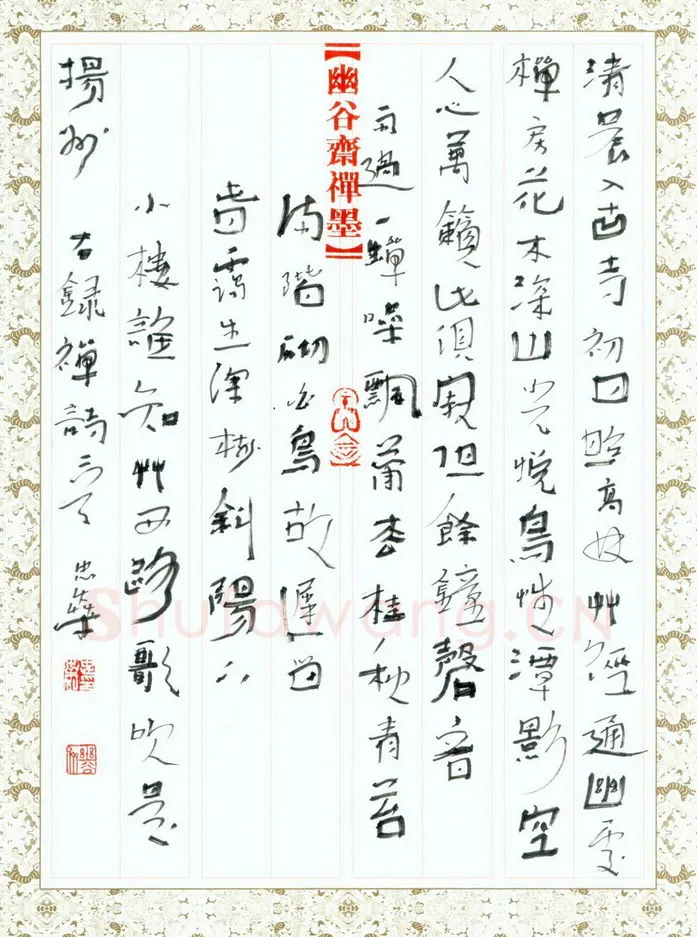 清晨入古寺初日照高林竹徑通幽處
禪房花木深山光悅鳥性潭影空
人心萬籟此俱寂但餘鐘磬音
【幽谷齋禪墨】
雨過一蟬噪飄蕭松桂秋青苔
滿階砌白鳥故遲留
暮靄生深樹斜陽下
小樓誰知竹西路歌吹是
揚州 右錄禪詩二首 忠犖
Shufawang.CN